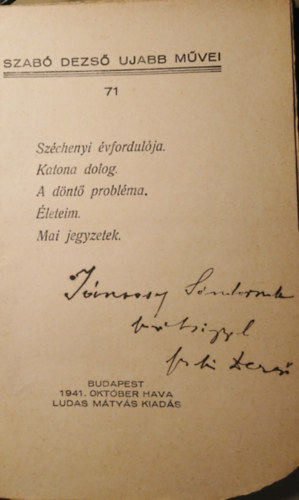 SZABÓ DEZSŐ UJABB MŰVEI
71
Széchenyi évfordulója.
Katona dolog.
A döntő probléma.
Életeim.
Mai jegyzetek.
Sándornak
Dezső
BUDAPEST
1941. OKTÓBER HAVA
LUDAS MÁTYÁS KIADÁS